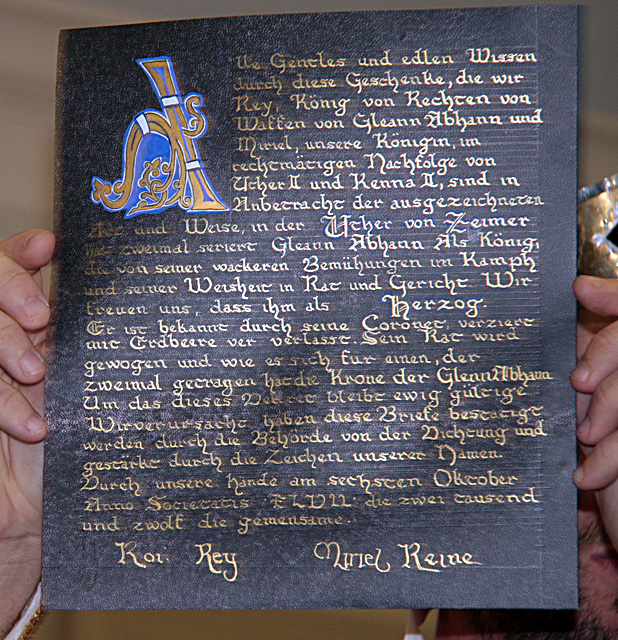 Alle Gentles und edlen Wissen
durch diese Geschenke, die wir
Rey, König von Rechten von
Waffen von Gleann Abhann und
Miriel, unsere Königin, im
rechtmätigen Nachfolge von
Uther II und Kenna II, sind in
Anbetracht der ausgezeichneten
Art und Weise, in der Uther von Zeimer
hat zweimal seriert Gleann Abhann Als König,
die von seiner wackeren Bemühungen im Kamph
und seiner Weisheit in Rat und Gericht Wir
treuen uns, dass ihm als Herzog.
Er ist bekannt durch seine Coronet, verziert
mit Erdbeere ver verlasst. Sein Rat wird
gewogen und wie es sich fur einen, der
zweimal getragen hat die Krone der Glenn Abhann
Um das dieses Dekret bleibt ewig gültige
Wir verursacht haben diese Briefe bestatigt
werden durch die Behorde von der Dichtung und
gestärkt durch die Zeichen unserer Namen.
Durch unsere hande am sechsten Oktober
Anno Societatis XLVII: die zwei tausend
und zwolf die gemeinsame.
Roi Rey Miriel Reine